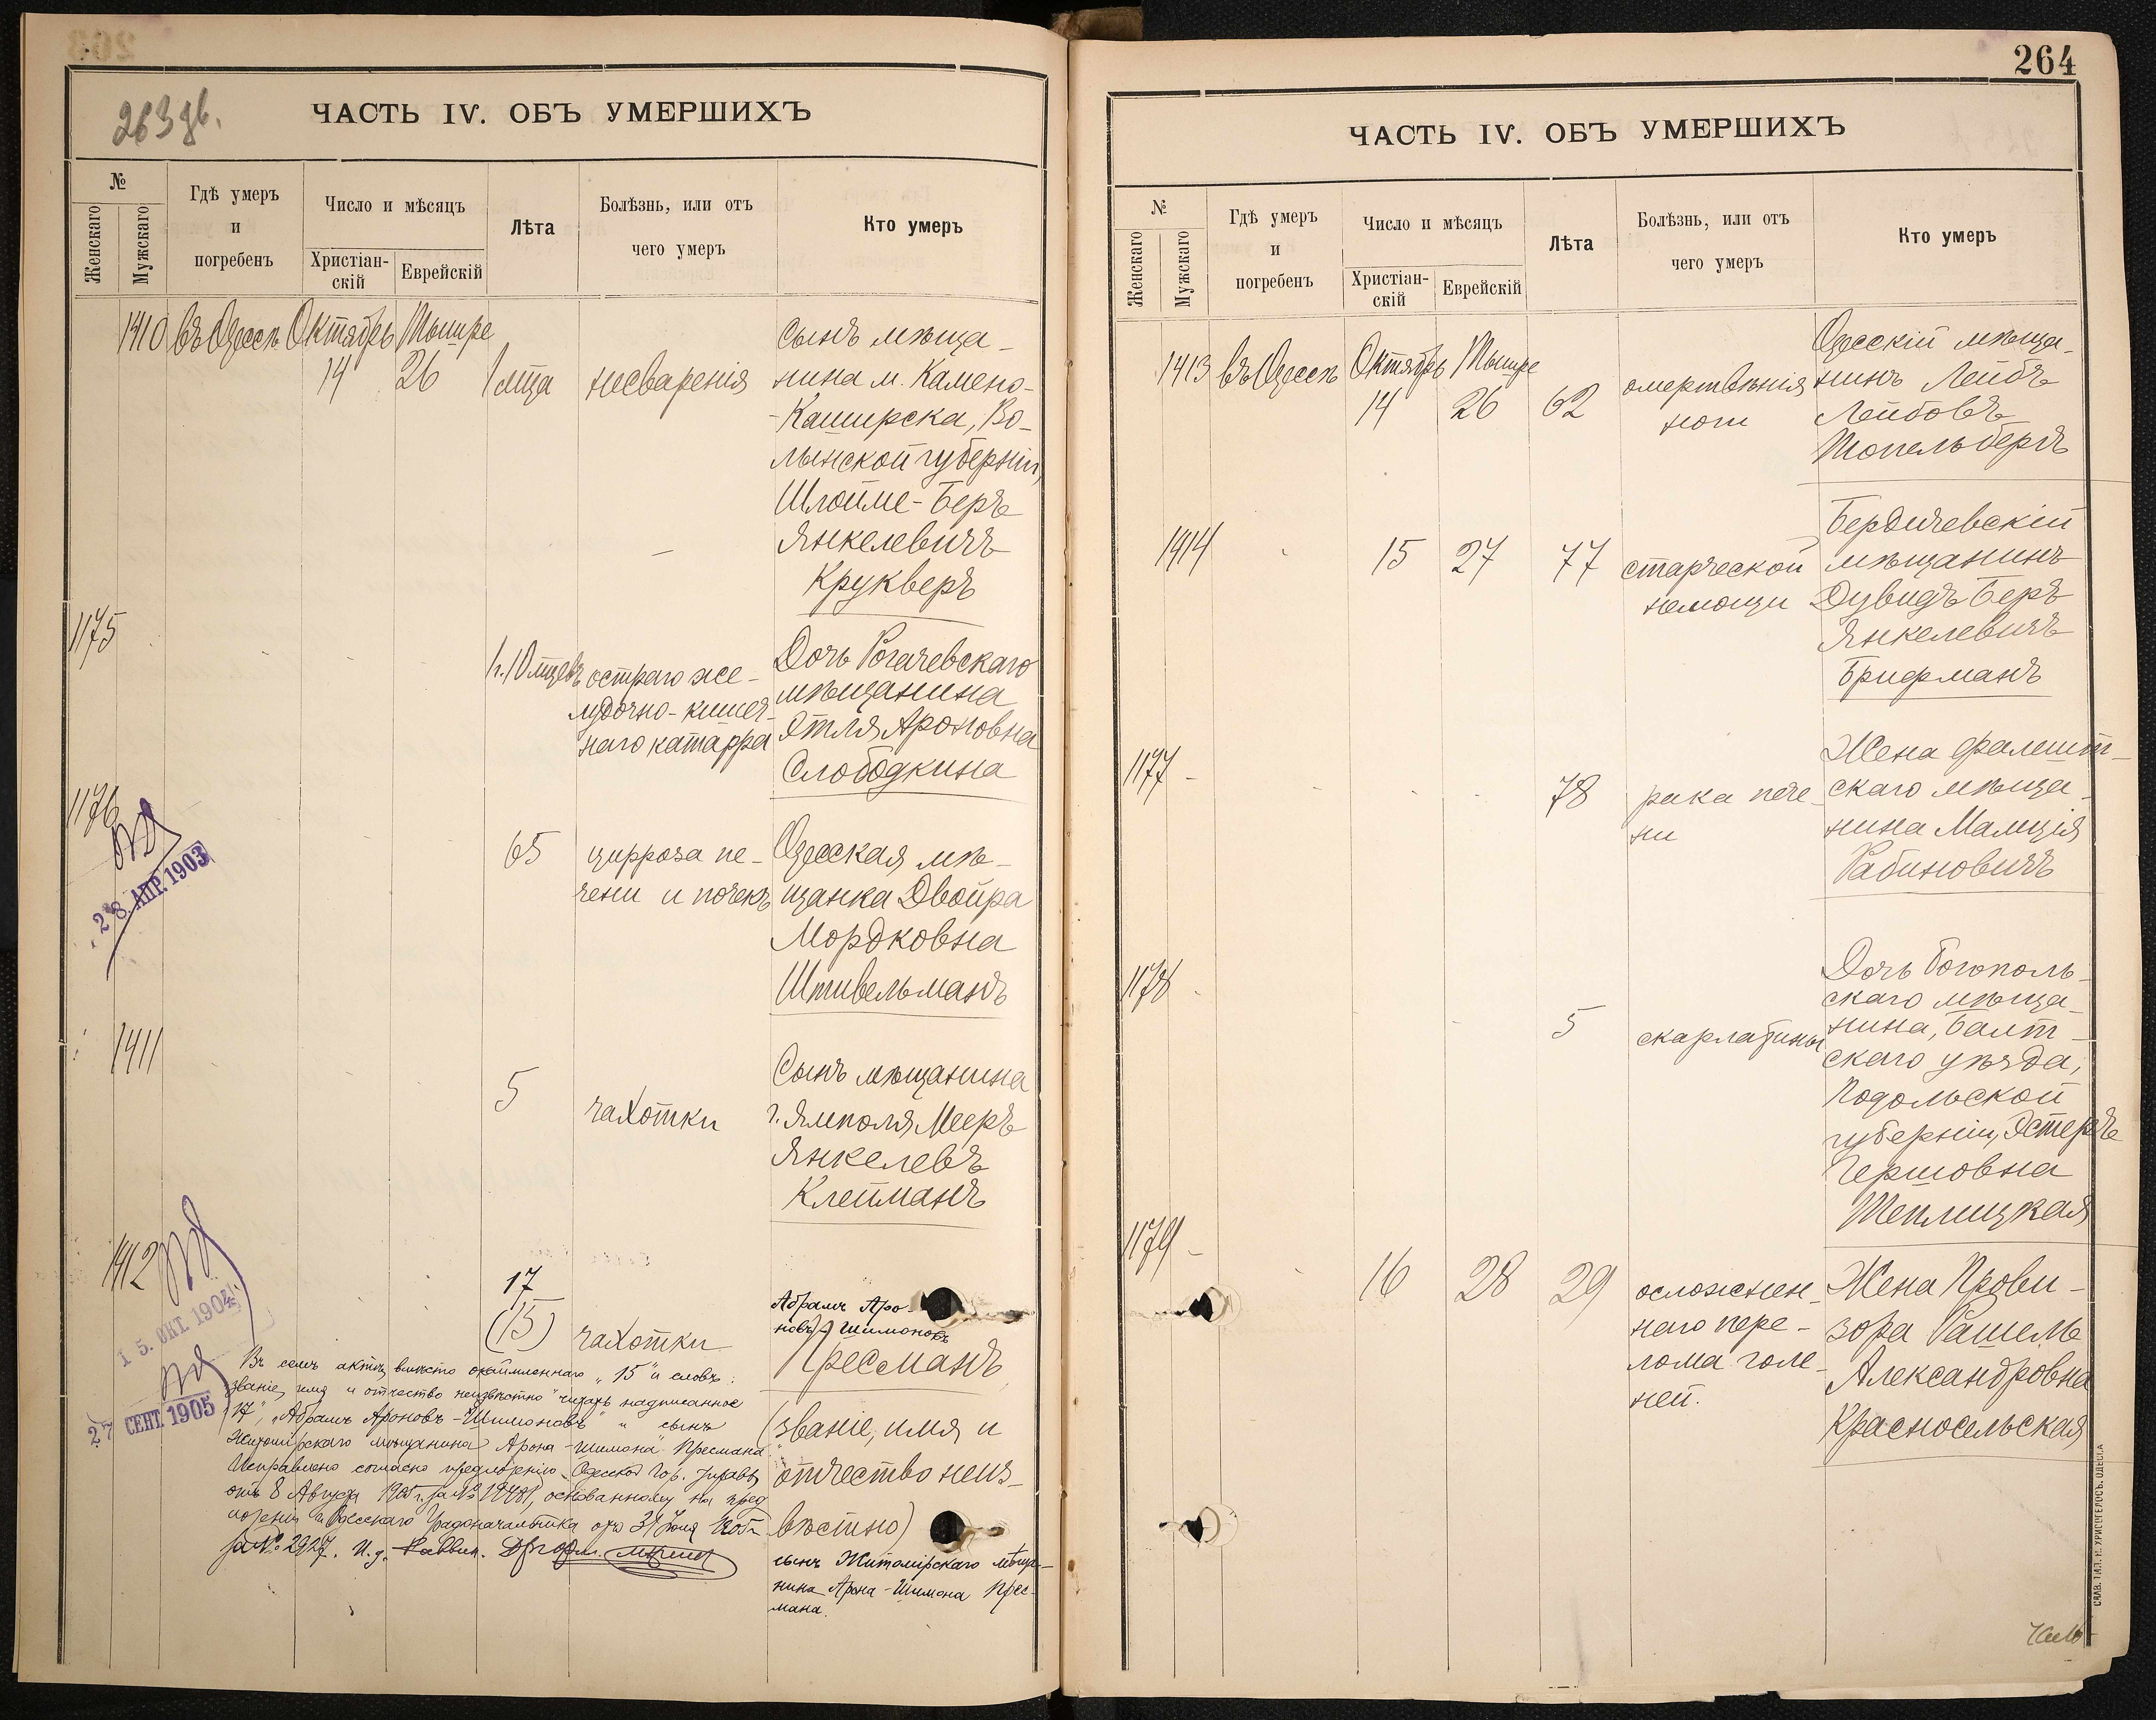 263 об.
ЧАСТЬ IV. ОБЪ УМЕРШИХЪ
№
Женскаго
Мужскаго
Гдѣ умеръ
и
погребенъ
Число и мѣсяцъ
Христіан-
скій
Еврейскій
Лѣта
Болѣзнь, или отъ
чего умеръ
Кто умеръ
1410 въ Одессѣ Октябрь Тышре
14 26 1 мца несваренія
сынъ мѣща-
нина м. Камено-
-Каширска, Во-
лынской губерніи,
Шлойме-Беръ
Янкелевичъ
Крукверъ
1175
1 г. 10 мцевъ остраго же-
лудочно-кишеч-
наго катарра
Дочь Рогачевскаго
мѣщанина
Этля Ароновна
Слободкина
1176
28 АПР. 1903
65 цирроза пе-
чени и почекъ
Одесская мѣ-
щанка Двойра
Мордковна
Штивельманъ
1411
5 чахотки
Сынъ мѣщанина
г. Ямполя, Мееръ
Янкелевъ
Клейманъ
1412
15. ОКТ. 1904
27 СЕНТ. 1905
17
(15) чахотки
Абрамъ Аро-
новъ-Шимоновъ
Пресманъ
(званіе, имя и
отчество неиз-
вѣстно)
сынъ Житомірскаго мѣща-
нина Арона-Шимона Прес-
мана.
Въ семъ актѣ, вмѣсто окаймленнаго „15" и словъ:
званіе, имя и отчество неизвѣстно" читать надписанное
„17", „Абрамъ Ароновъ-Шимоновъ" и „сынъ
Житомірскаго мѣщанина Арона-Шимона Пресмана."
Исправлено согласно предложенію Одесской Гор. Управы
отъ 8 Августа 1905 г. за №, основанному на пред
ложеніи Одесскаго Градоначальника отъ 31 Іюля 1905 г.
за № 2927. И. д. Раввин.
264
ЧАСТЬ IV. ОБЪ УМЕРШИХЪ
№
Женскаго
Мужскаго
Гдѣ умеръ
и
погребенъ
Число и мѣсяцъ
Христіан-
скій
Еврейскій
Лѣта
Болѣзнь, или отъ
чего умеръ
Кто умеръ
1413 въ Одессѣ Октябрь Тышре
14 26 62 омертвѣнія
ноги
Одесскій мѣща-
нинъ Лейбъ
Лейбовъ
Топельбергъ
1414 15 27 77 старческой
немощи
Бердичевскій
мѣщанинъ
Дувидъ Беръ
Янкелевичъ
Брифманъ
1177
78 рака пече-
ни
Жена Фалешт-
скаго мѣща-
нина Малція
Рабиновичъ
1178
5 скарлатины
Дочь Богополь-
скаго мѣща-
нина, Балт-
скаго уѣзда,
Подольской
губерніи, Эстеръ
Гершовна
Теплицкая
1179
16 28 29 осложнен-
наго пере-
лома голе-
ней.
Жена Прови-
зора Рашель
Александровна
Красносельская
СЛАВ. ТИП. Н. ХРИСОГЕЛОСЪ. ОДЕССА